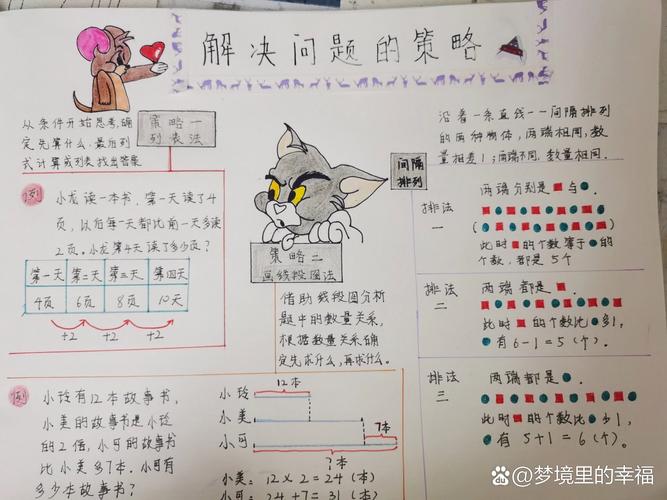 解决问题的策略
从条件开始思考,确
定先算什么,最后列
式计算或列表找出答案
策略一
列表法
例
小龙读一本书,第一天读了4
页,以后每一天都比前一天多读
2页。小龙第4天读了多少页?
第一天 第二天 第三天 第四天
4页 6页 8页 10天
+2 +2 +2
策略二
画线段图法
借助线段图分析
题中的数量关系,
根据数量关系确
定先求什么,再求什么。
例
小玲有12本故事书,
小美的故事书是小玲
的2倍,小可的故事书
比小美多7本。小可有
多少本故事书?
12本
小玲
小美
7本
小可
?本
小美:12×2=24(本)
小可:24+7=31(本)
间隔
排列
沿着一条直线一一间隔排列
的两种物体,两端相同,数
量相差1;两端不同,数量相同。
排法
一
两端分别是■与●。
■●■●■●■●■●
(●■●■●■●■●■)
此时■的个数等于●的
个数,都是5个
排法
二
两端都是■。
■●■●■●■●■●■
此时■的个数比●多1,
●有6-1=5(个)。
排法
三
两端都是●。
●■●■●■●■●■●
此时■的个数比●少1,
●有5+1=6(个)。
@梦境里的幸福